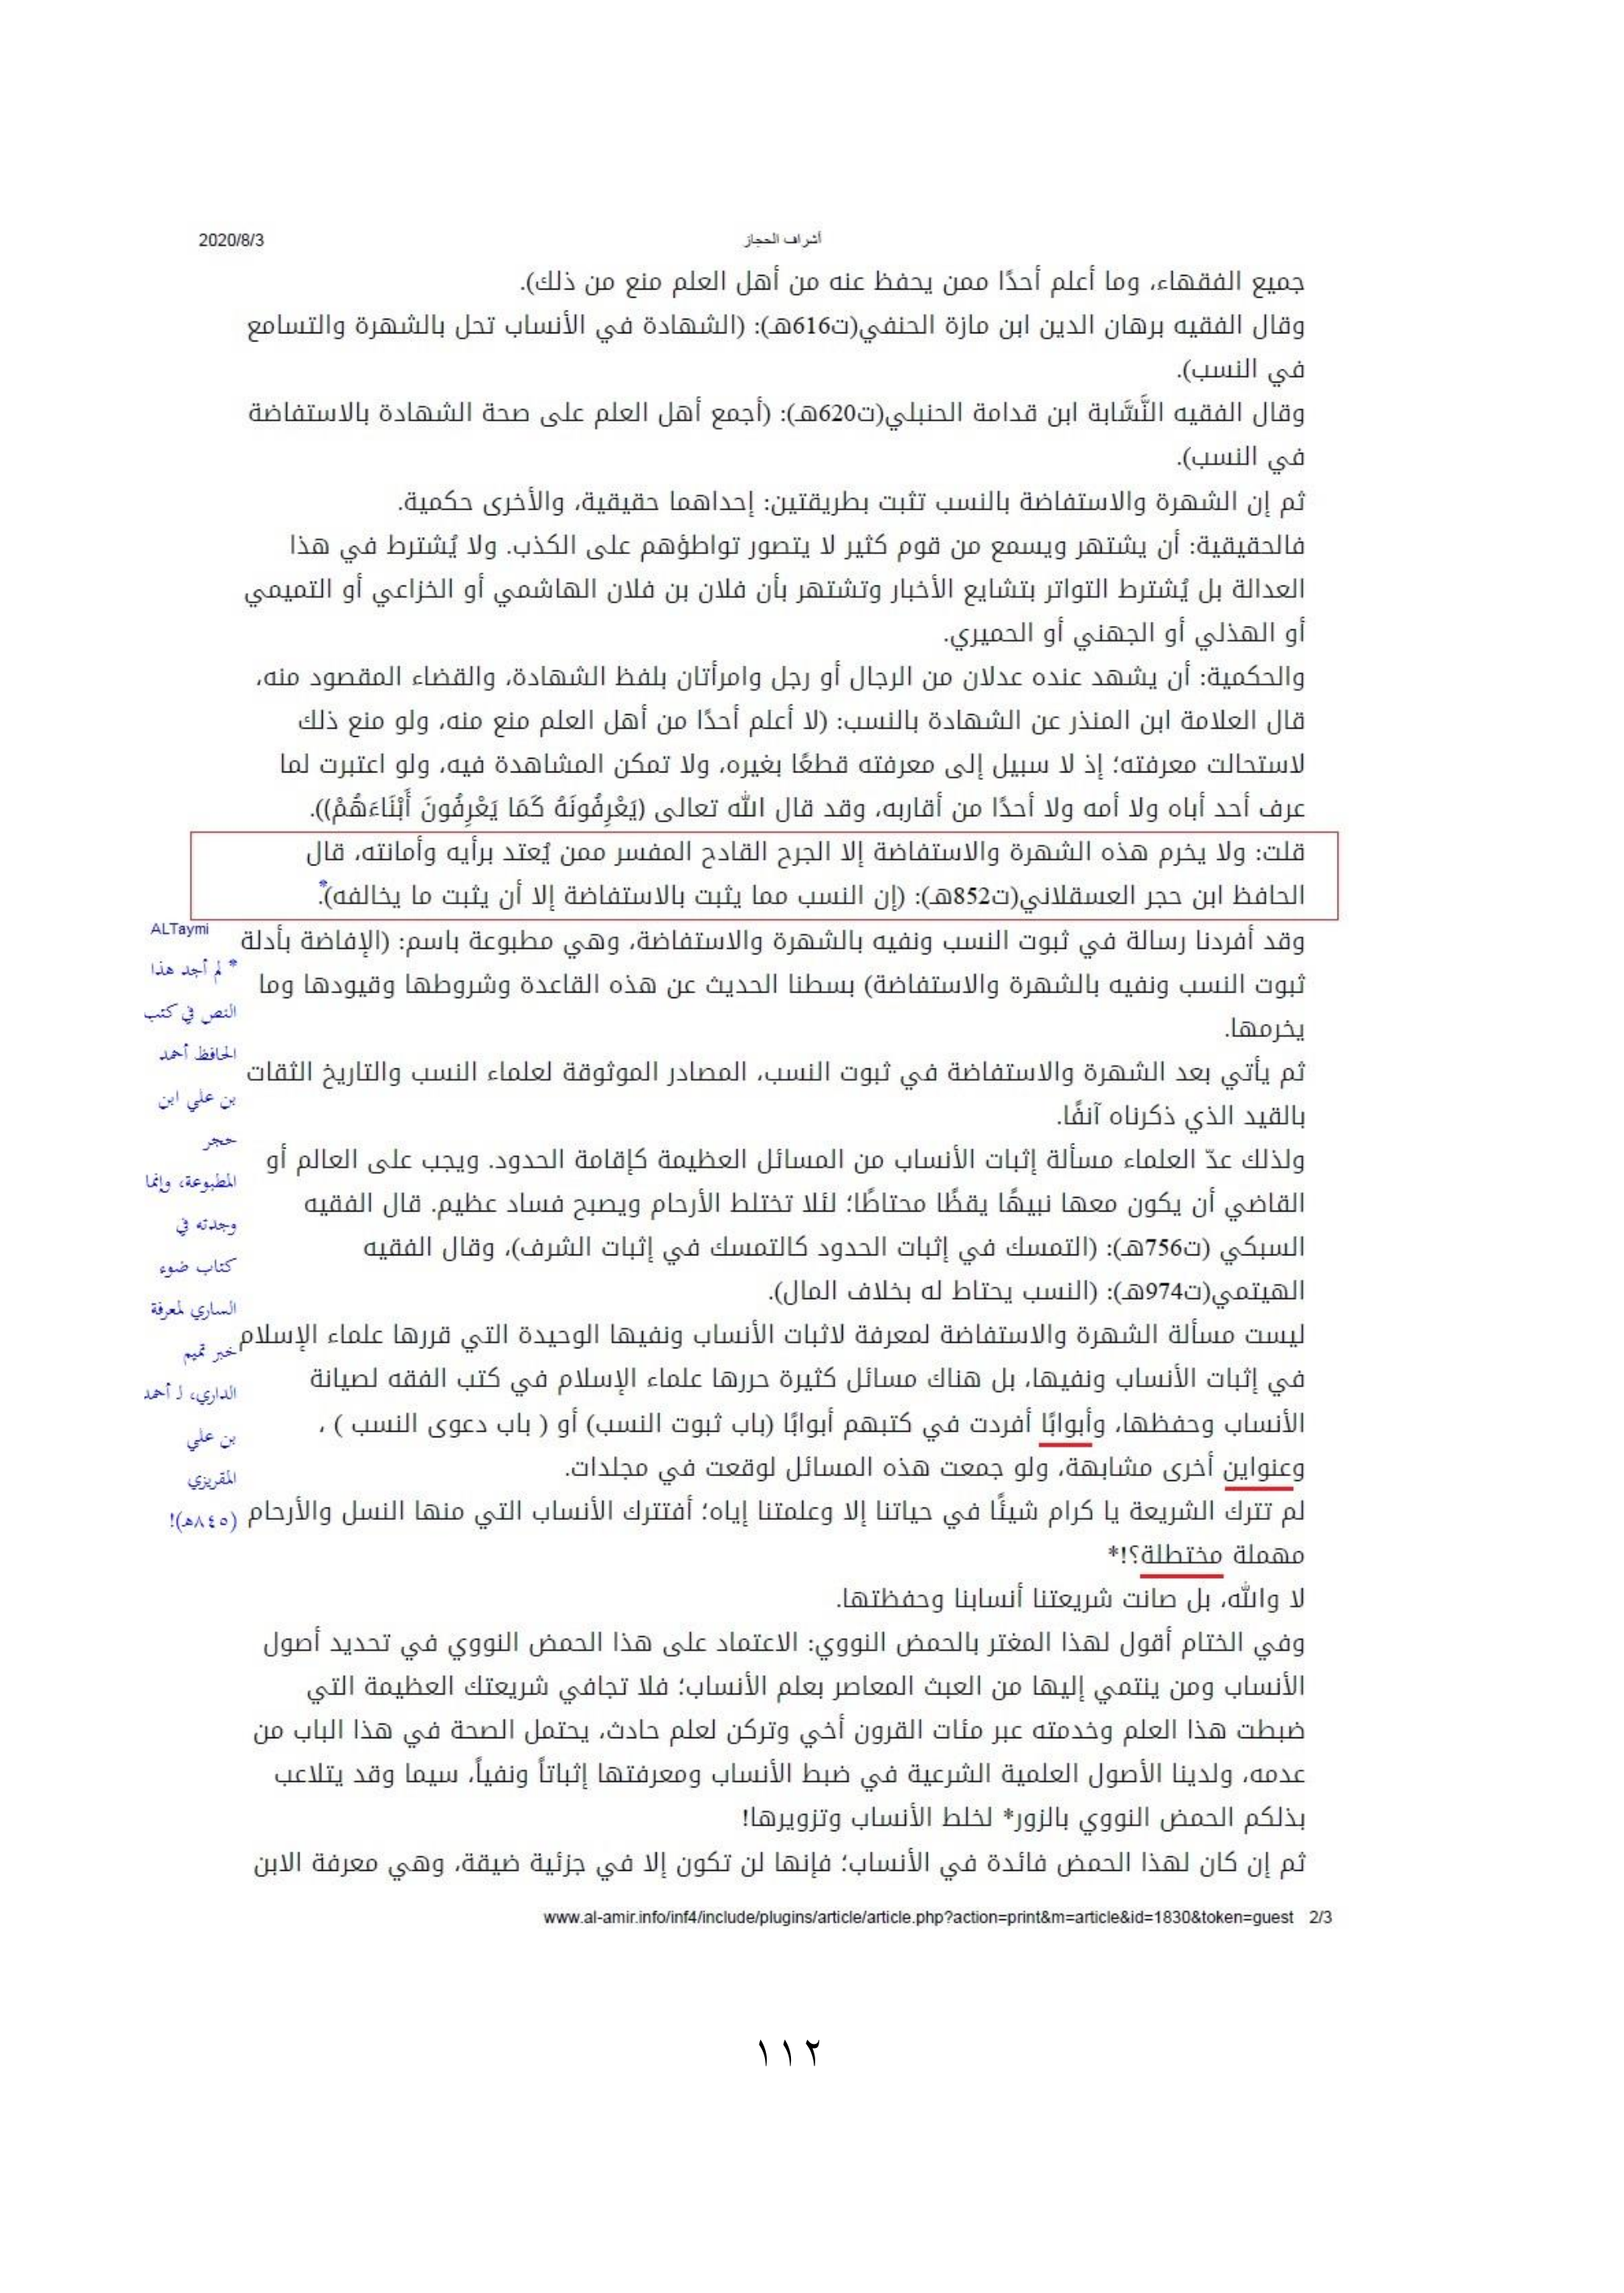 2020/8/3
أشراف الحجاز
جميع الفقهاء، وما أعلم أحدًا ممن يحفظ عنه من أهل العلم منع من ذلك).
وقال الفقيه برهان الدين ابن مازة الحنفي(ت616هـ): (الشهادة في الأنساب تحل بالشهرة والتسامع
في النسب).
وقال الفقيه النَّسَّابة ابن قدامة الحنبلي(ت620هـ): (أجمع أهل العلم على صحة الشهادة بالاستفاضة
في النسب).
ثم إن الشهرة والاستفاضة بالنسب تثبت بطريقتين: إحداهما حقيقية، والأخرى حكمية.
فالحقيقية: أن يشتهر ويسمع من قوم كثير لا يتصور تواطؤهم على الكذب. ولا يُشترط في هذا
العدالة بل يُشترط التواتر بتشايع الأخبار وتشتهر بأن فلان بن فلان الهاشمي أو الخزاعي أو التميمي
أو الهذلي أو الجهني أو الحميري.
والحكمية: أن يشهد عنده عدلان من الرجال أو رجل وامرأتان بلفظ الشهادة، والقضاء المقصود منه،
قال العلامة ابن المنذر عن الشهادة بالنسب: (لا أعلم أحدًا من أهل العلم منع منه، ولو منع ذلك
لاستحالت معرفته؛ إذ لا سبيل إلى معرفته قطعًا بغيره، ولا تمكن المشاهدة فيه، ولو اعتبرت لما
عرف أحد أباه ولا أمه ولا أحدًا من أقاربه، وقد قال الله تعالى (يَعْرِفُونَهُ كَمَا يَعْرِفُونَ أَبْنَاءَهُمْ)).
قلت: ولا يخرم هذه الشهرة والاستفاضة إلا الجرح القادح المفسر ممن يُعتد برأيه وأمانته، قال
الحافظ ابن حجر العسقلاني(ت852هـ): (إن النسب مما يثبت بالاستفاضة إلا أن يثبت ما يخالفه).*
وقد أفردنا رسالة في ثبوت النسب ونفيه بالشهرة والاستفاضة، وهي مطبوعة باسم: (الإفاضة بأدلة
ثبوت النسب ونفيه بالشهرة والاستفاضة) بسطنا الحديث عن هذه القاعدة وشروطها وقيودها وما
يخرمها.
ثم يأتي بعد الشهرة والاستفاضة في ثبوت النسب، المصادر الموثوقة لعلماء النسب والتاريخ الثقات
بالقيد الذي ذكرناه آنفًا.
ولذلك عدّ العلماء مسألة إثبات الأنساب من المسائل العظيمة كإقامة الحدود. ويجب على العالم أو
القاضي أن يكون معها نبيهًا يقظًا محتاطًا؛ لئلا تختلط الأرحام ويصبح فساد عظيم. قال الفقيه
السبكي (ت756هـ): (التمسك في إثبات الحدود كالتمسك في إثبات الشرف)، وقال الفقيه
الهيتمي(ت974هـ): (النسب يحتاط له بخلاف المال).
ليست مسألة الشهرة والاستفاضة لمعرفة لاثبات الأنساب ونفيها الوحيدة التي قررها علماء الإسلام
في إثبات الأنساب ونفيها، بل هناك مسائل كثيرة حررها علماء الإسلام في كتب الفقه لصيانة
الأنساب وحفظها، وأبوابًا أفردت في كتبهم أبوابًا (باب ثبوت النسب) أو ( باب دعوى النسب ) ،
وعنواين أخرى مشابهة، ولو جمعت هذه المسائل لوقعت في مجلدات.
لم تترك الشريعة يا كرام شيئًا في حياتنا إلا وعلمتنا إياه؛ أفتترك الأنساب التي منها النسل والأرحام
مهملة مختطلة؟!*
لا والله، بل صانت شريعتنا أنسابنا وحفظتها.
وفي الختام أقول لهذا المغتر بالحمض النووي: الاعتماد على هذا الحمض النووي في تحديد أصول
الأنساب ومن ينتمي إليها من العبث المعاصر بعلم الأنساب؛ فلا تجافي شريعتك العظيمة التي
ضبطت هذا العلم وخدمته عبر مئات القرون أخي وتركن لعلم حادث، يحتمل الصحة في هذا الباب من
عدمه، ولدينا الأصول العلمية الشرعية في ضبط الأنساب ومعرفتها إثباتاً ونفياً، سيما وقد يتلاعب
بذلكم الحمض النووي بالزور* لخلط الأنساب وتزويرها!
ثم إن كان لهذا الحمض فائدة في الأنساب؛ فإنها لن تكون إلا في جزئية ضيقة، وهي معرفة الابن
ALTaymi
* لم أجد هذا
النص في كتب
الحافظ أحمد
بن علي ابن
حجر
المطبوعة، وإنما
وجدته في
كتاب ضوء
الساري لمعرفة
خبر تميم
الداري، لـ أحمد
بن علي
المقريزي
(٨٤٥هـ)!
www.al-amir.info/inf4/include/plugins/article/article.php?action=print&m=article&id=1830&token=guest 2/3
١١٢